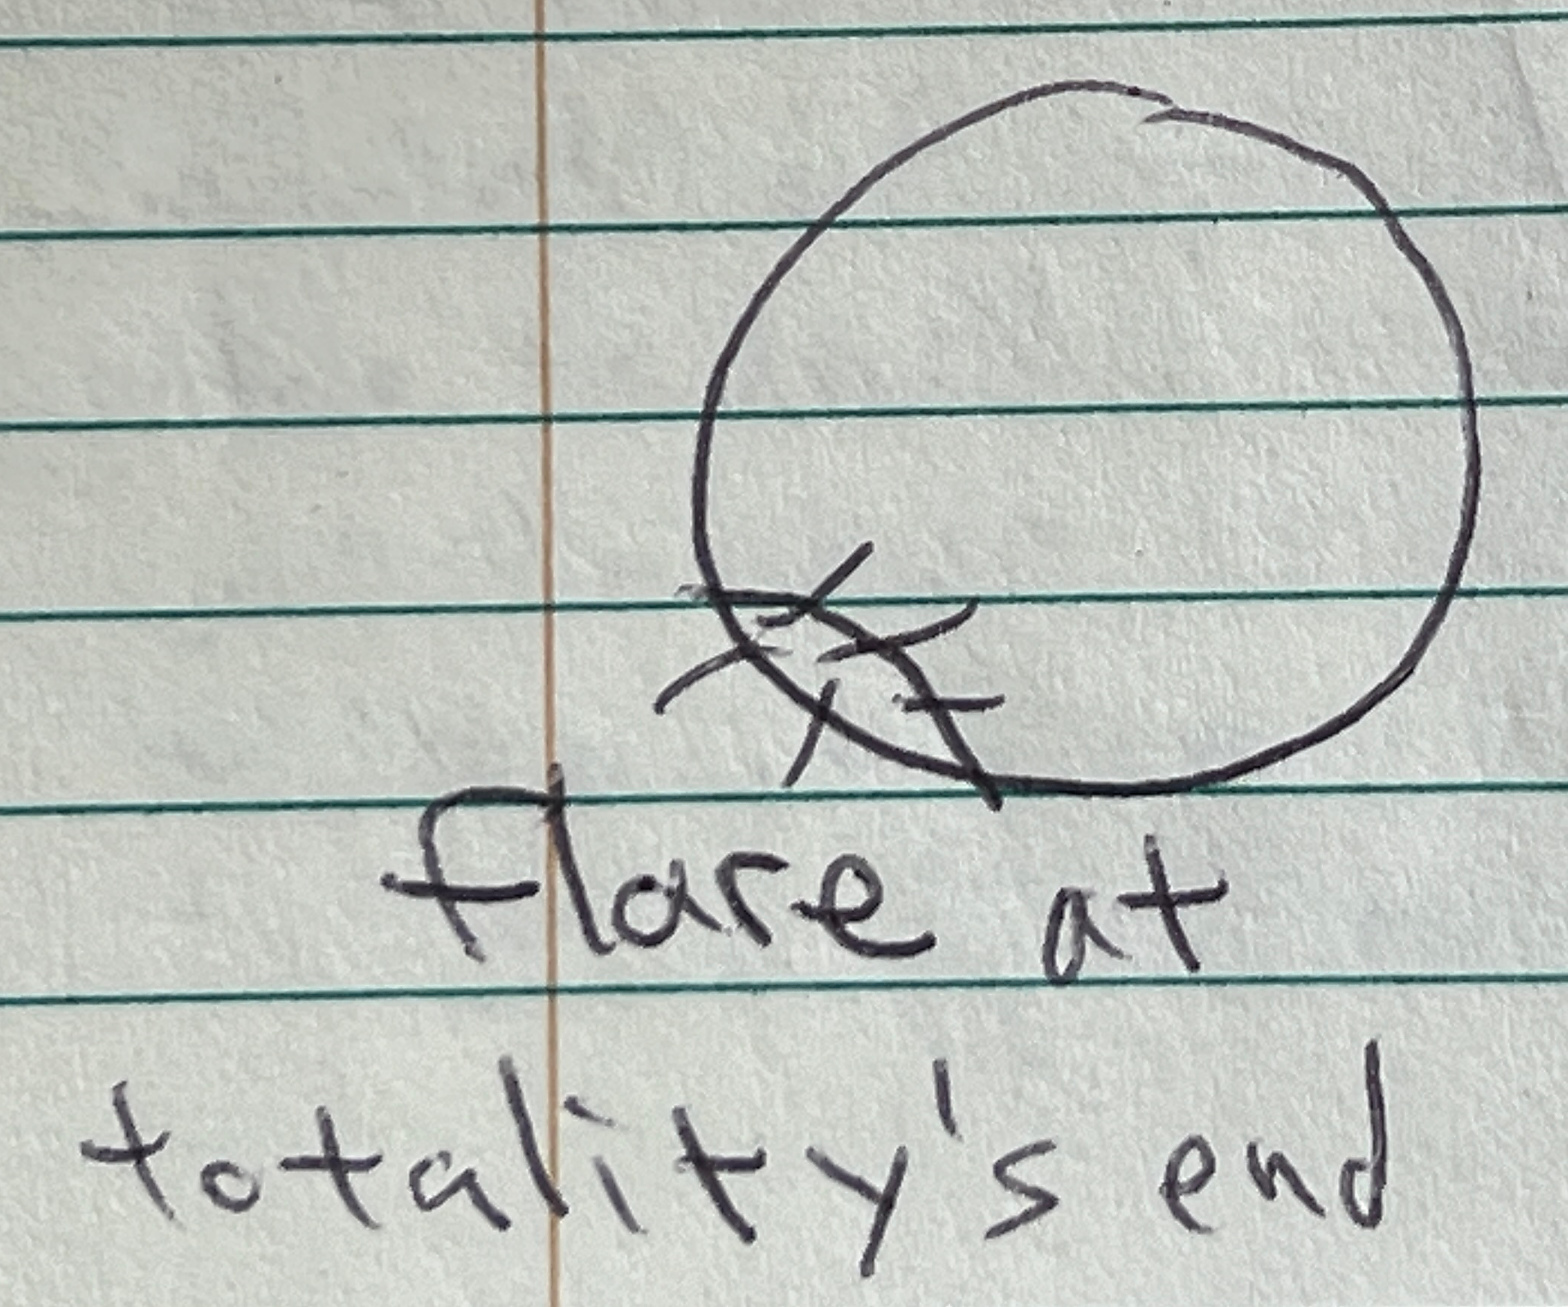 flare at
totality's end